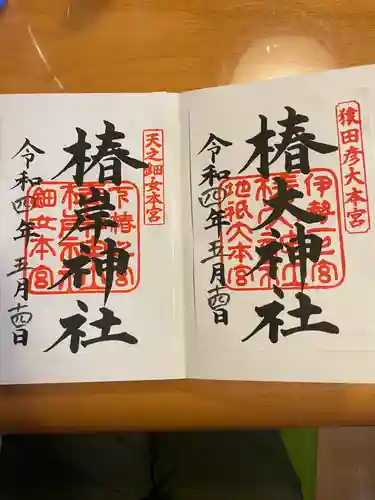 猿田彦大本宮
椿大神社
伊勢一宮
地祇大本宮
令和四年五月十四日
天之鈿女本宮
椿岸神社
鈿女本宮
令和四年五月十四日